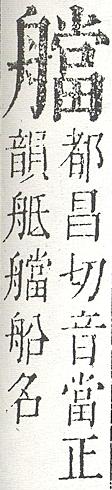 艡
都昌切音當正
韻艇艡船名